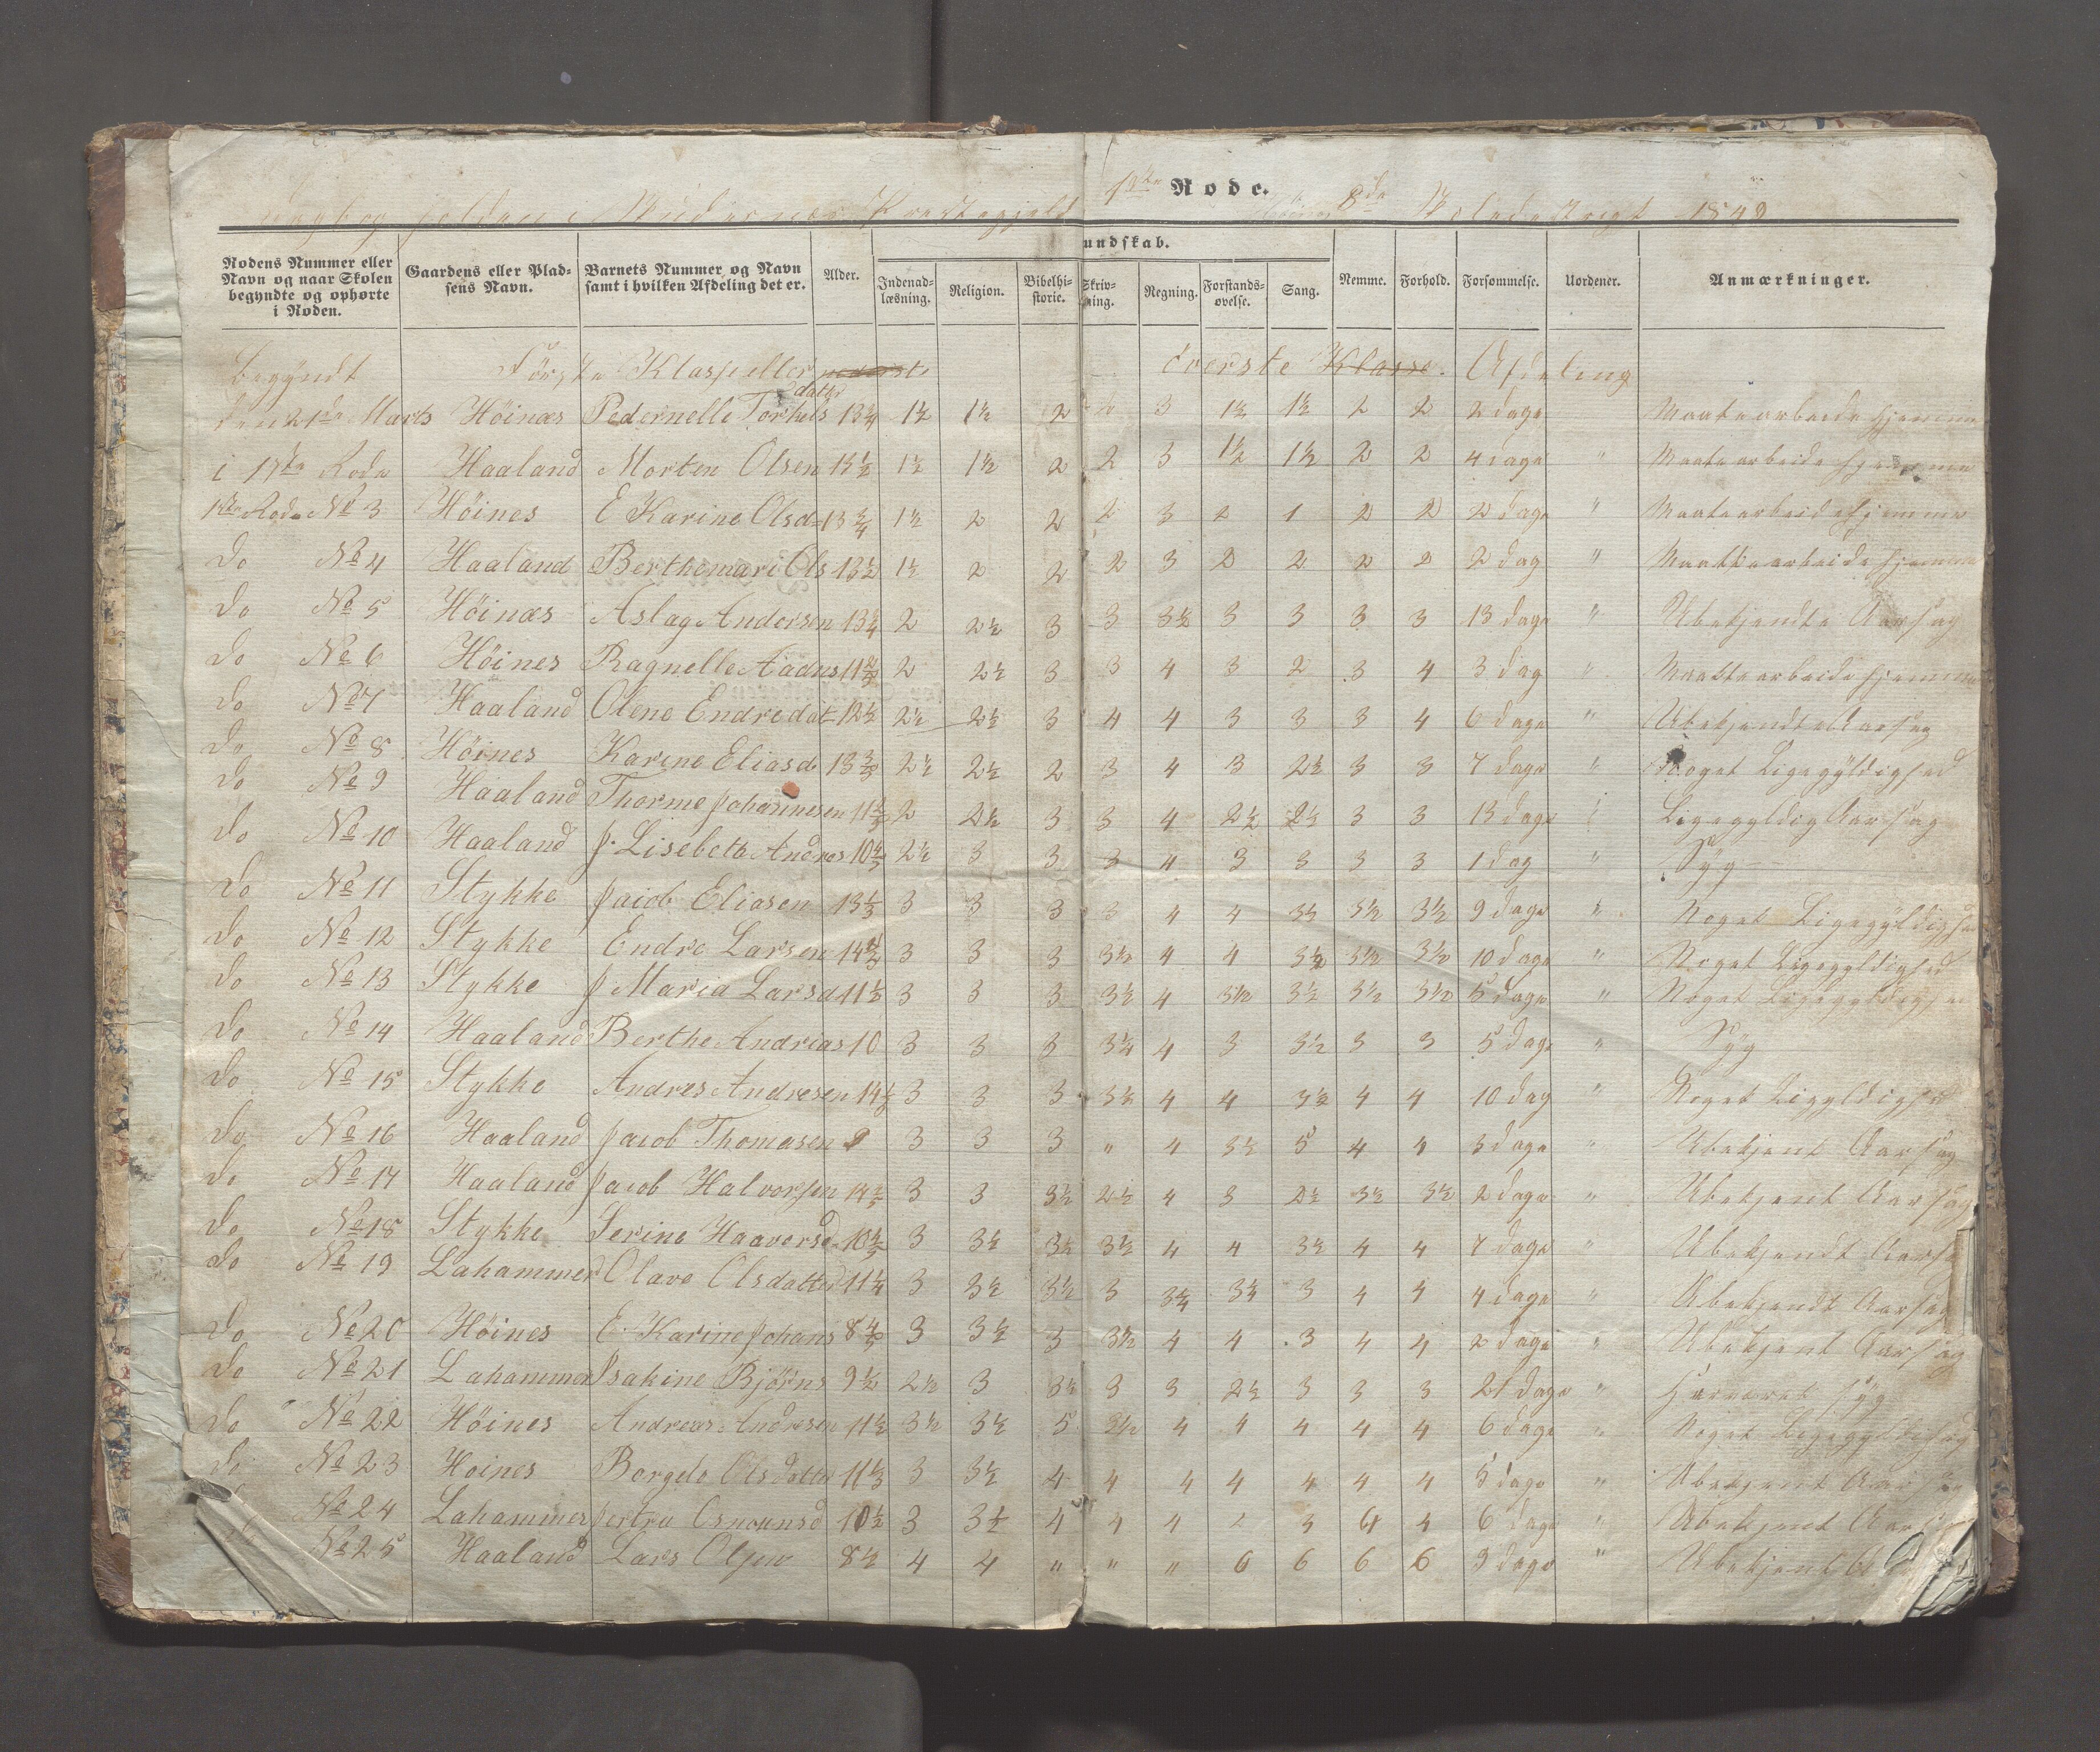 1ste Rode.
Dagbog holden i Præstegjeld 8de Skoledestrigt 1848
Rodens Nummer eller Navn og naar Skolen begyndte og ophørte i Roden. Gaardens eller Pladsens Navn. Barnets Nummer og Navn samt i hvilken Afdeling det er. Alder. undskab. Indenadlæsning. Religion. Bibelhistorie. Skrivning. Regning. Forstandsøvelse. Sang. Nemme. Forhold. Forsømmelse. Uordener. Anmærkninger.
Begyndt Förste Klasse eller nederste överste Klasse. Afdeling
datter
den 21de Marts Höinæs Pedernelle Torkels 13 3/4 1½ 1½ 2 2 3 1½ 1½ 2 2 2 dage Maate arbeide hjemme
i 1ste Rode Haaland Morten Olsen 13½ 1½ 1½ 2 2 3 1½ 1½ 2 2 4 dage " Maate arbeide hjemme
1ste Rode No 3 Höines E Karine Olsd 13 3/4 1½ 2 2 2 3 2 1 2 2 2 dage " Maate arbeide hjemme
Do No 4 Haaland Berthemari Ols 13½ 1½ 2 2 2 3 2 2 2 2 2 dag " Maatte arbeide hjemme
Do No 5 Höinæs Aslag Andersen 13¼ 2 2½ 3 3 3½ 3 3 3 3 13 dage " Ubekjendte Aarsag
Do No 6 Höines Ragnelle Aadns 11 2/3 2 2½ 3 3 4 3 2 3 4 3 dag " Maatte arbeide hjemme
Do No 7 Haaland Olene Endredat 12½ 2½ 2½ 3 4 4 3 3 3 4 6 dage " Ubekjendte Aarsag
Do No 8 Höines Karine Eliasd 13 2/3 2½ 2½ 2 3 4 3 2½ 3 3 7 dage " Noget Ligegÿldighed
Do No 9 Haaland Thorme Johannesen 11 2/3 2 2½ 3 3 4 2½ 2½ 3 3 13 dage Ligegyldig Aarsag
Do No 10 Haaland J. Lisebeta Andres 10 4/5 2½ 3 3 3 4 3 3 3 3 1 dag " Syg
Do No 11 Stykke Jacob Eliasen 13 1/3 3 3 3 3 4 4 3½ 3½ 3½ 9 dage " Noget Ligegÿldighed
Do No 12 Stykke Endre Larsen 14½ 3 3 3 3½ 4 4 3½ 3½ 3½ 10 dage " Noget Ligegyldighed
Do No 13 Stykke J Maria Larsd 11½ 3 3 3 3½ 4 3½ 3½ 3½ 3½ 5 dage " Noget Ligegyldighed
Do No 14 Haaland Berthe Andrias 10 3 3 3 3¼ 4 3 3½ 3 3 5 dage " Syg
Do No 15 Stykke Andres Andresen 14 1/3 3 3 3 3½ 4 4 3½ 4 4 10 dag " Noget Ligyldighed
Do No 16 Haaland Jacob Thomasen 9 3 3 3 " 4 3½ 5 4 4 3 dage " Ubekjent Aarsag
Do No 17 Haaland Jacob Halvorsen 14 2/5 3 3 3½ 2½ 4 3 2½ 3½ 3½ 2 dage " Ubekjent Aarsag
Do No 18 Stykke Serine Haavorsd 10 4/5 3 3½ 3½ 3½ 4 4 3½ 4 4 7 dage " Ubekjendt Aarsa
Do No 19 Lahammer Olave Olsdatter 11¼ 3 3½ 3½ 3 3¾ 3¼ 3 4 4 4 dage " Ubekjendt Aarsag
Do No 20 Höines E. Karine Johans 8 4/5 3 3½ 3 3½ 4 4 3 4 4 2 dage " Ubekjent Aarsag
Do No 21 Lahammer Isakine Björns 9½ 2½ 3 3½ 3 3 2½ 3 3 3 21 dage " Harværet Syg
Do No 22 Höines Andreas Andresen 11½ 3½ 3½ 5 3½ 4 4 4 4 4 6 dage " Noget Ligegyldighed
Do No 23 Hoines Borgele Olsdatter 11 1/3 3 3½ 4 4 4 4 4 4 4 5 dage " Ubekjent Aarsag
No 24 Lahammer Osmunsd 10½ 3 3½ 4 4 4 3 4 4 6 dage " Ubekjent Aars
Do No 25 Haaland Lars Olsen 8½ 4 4 " " " 6 6 6 6 9 dage " Ubekjent